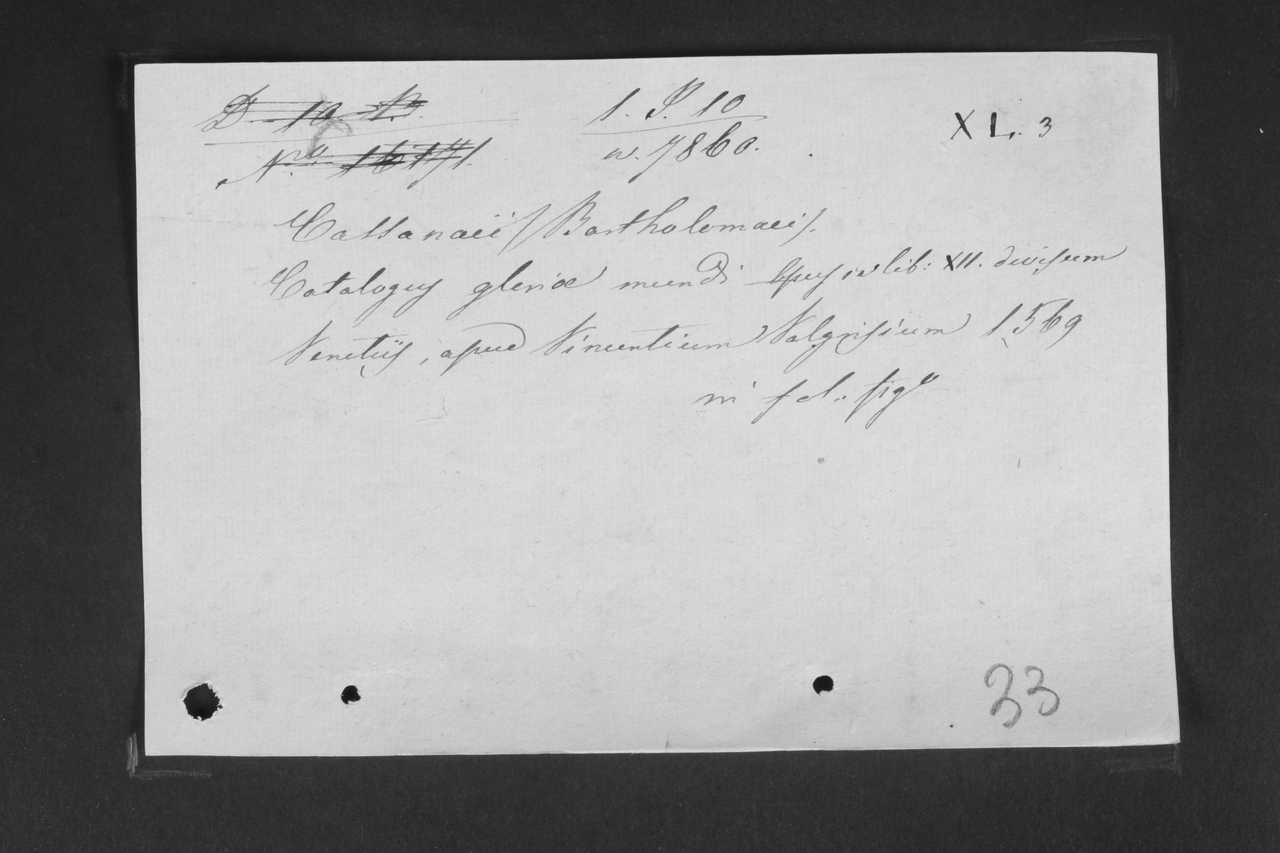 D. 10 B.
N.º 16171.
1. P. 10
n. 7860.
XL. 3
Cassanaei (Bartholomaei).
Catalogus gloriæ mundi Opus in lib: XII. divisum
Venetijs, apud Vincentium Valgrisium 1569
in fol. figº
33